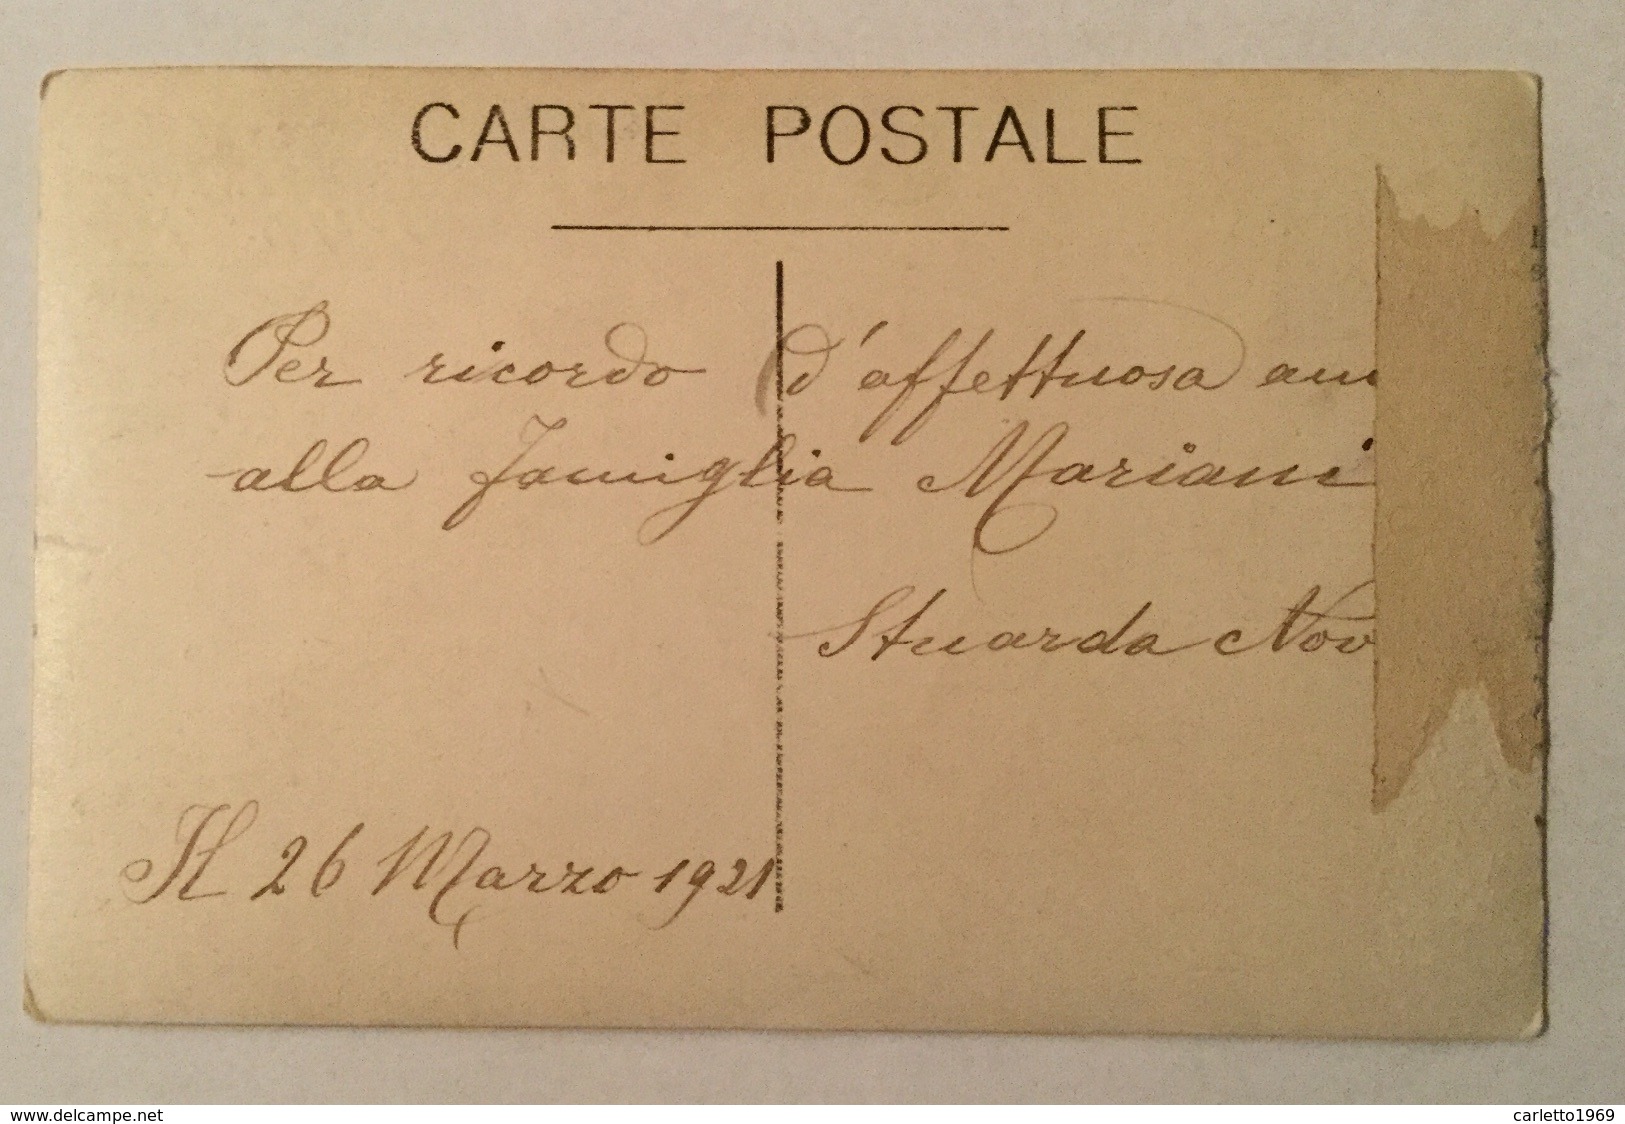 CARTE POSTALE
Per ricordo d'affettuosa
alla famiglia Mariani
Stuarda Nov
Il 26 Marzo 1921
www.delcampe.net
carletto1969